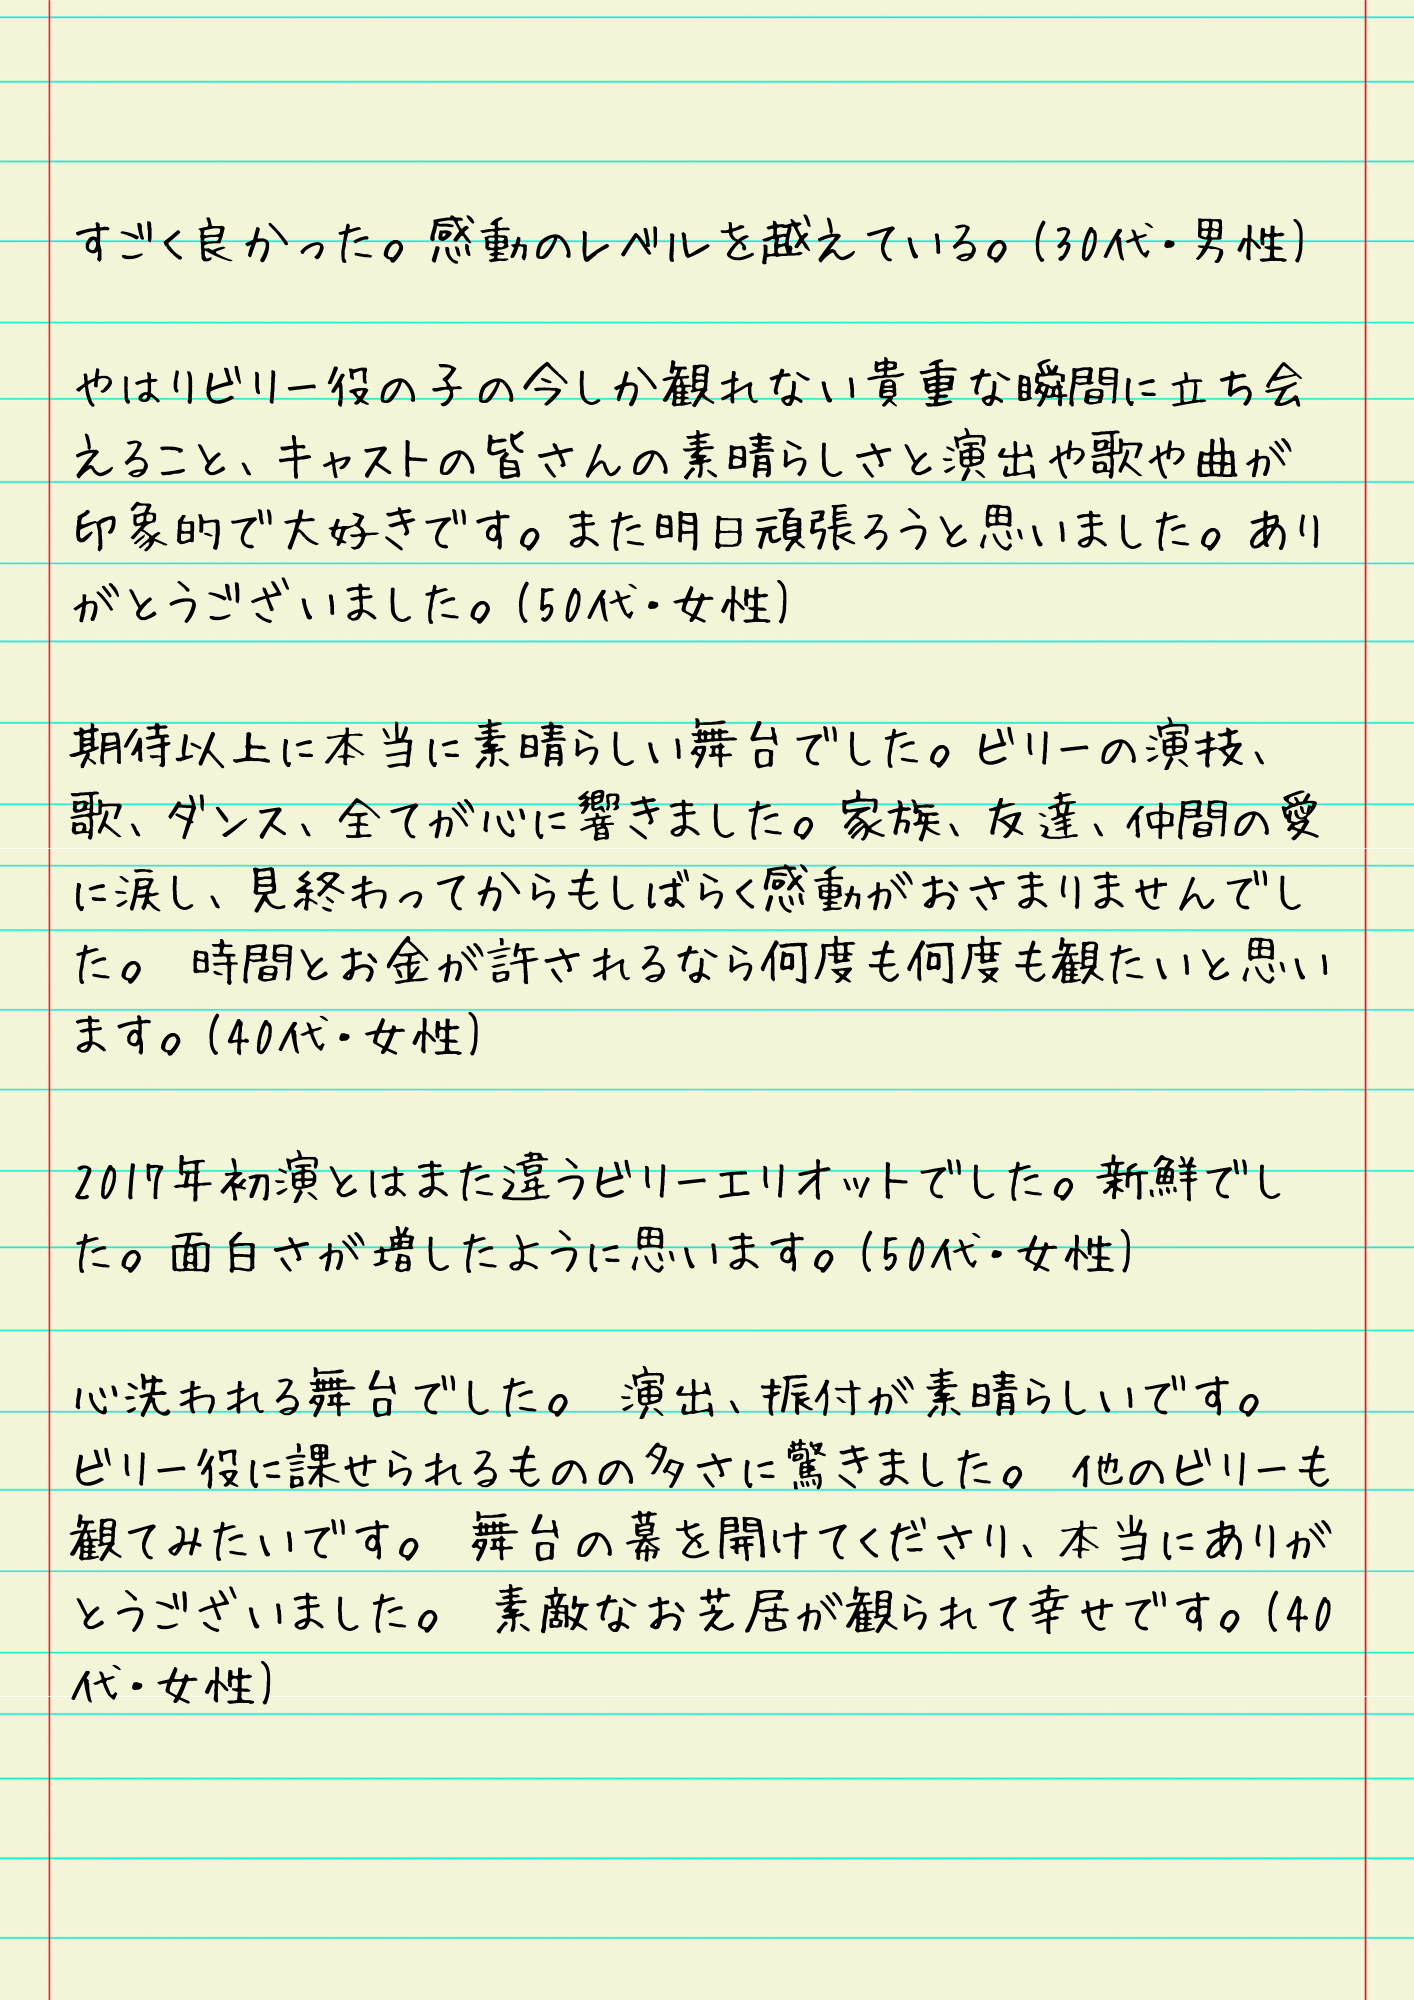 すごく良かった。感動のレベルを越えている。(30代・男性)
やはりビリー役の子の今しか観れない貴重な瞬間に立ち会
えること、キャストの皆さんの素晴らしさと演出や歌や曲が
印象的で大好きです。また明日頑張ろうと思いました。あり
がとうございました。(50代・女性)
期待以上に本当に素晴らしい舞台でした。ビリーの演技、
歌、ダンス、全てが心に響きました。家族、友達、仲間の愛
に涙し、見終わってからもしばらく感動がおさまりませんでし
た。 時間とお金が許されるなら何度も何度も観たいと思い
ます。(40代・女性)
2017年初演とはまた違うビリーエリオットでした。新鮮でし
た。面白さが増したように思います。(50代・女性)
心洗われる舞台でした。 演出、振付が素晴らしいです。
ビリー役に課せられるものの多さに驚きました。 他のビリーも
観てみたいです。 舞台の幕を開けてくださり、本当にありが
とうございました。 素敵なお芝居が観られて幸せです。(40
代・女性)